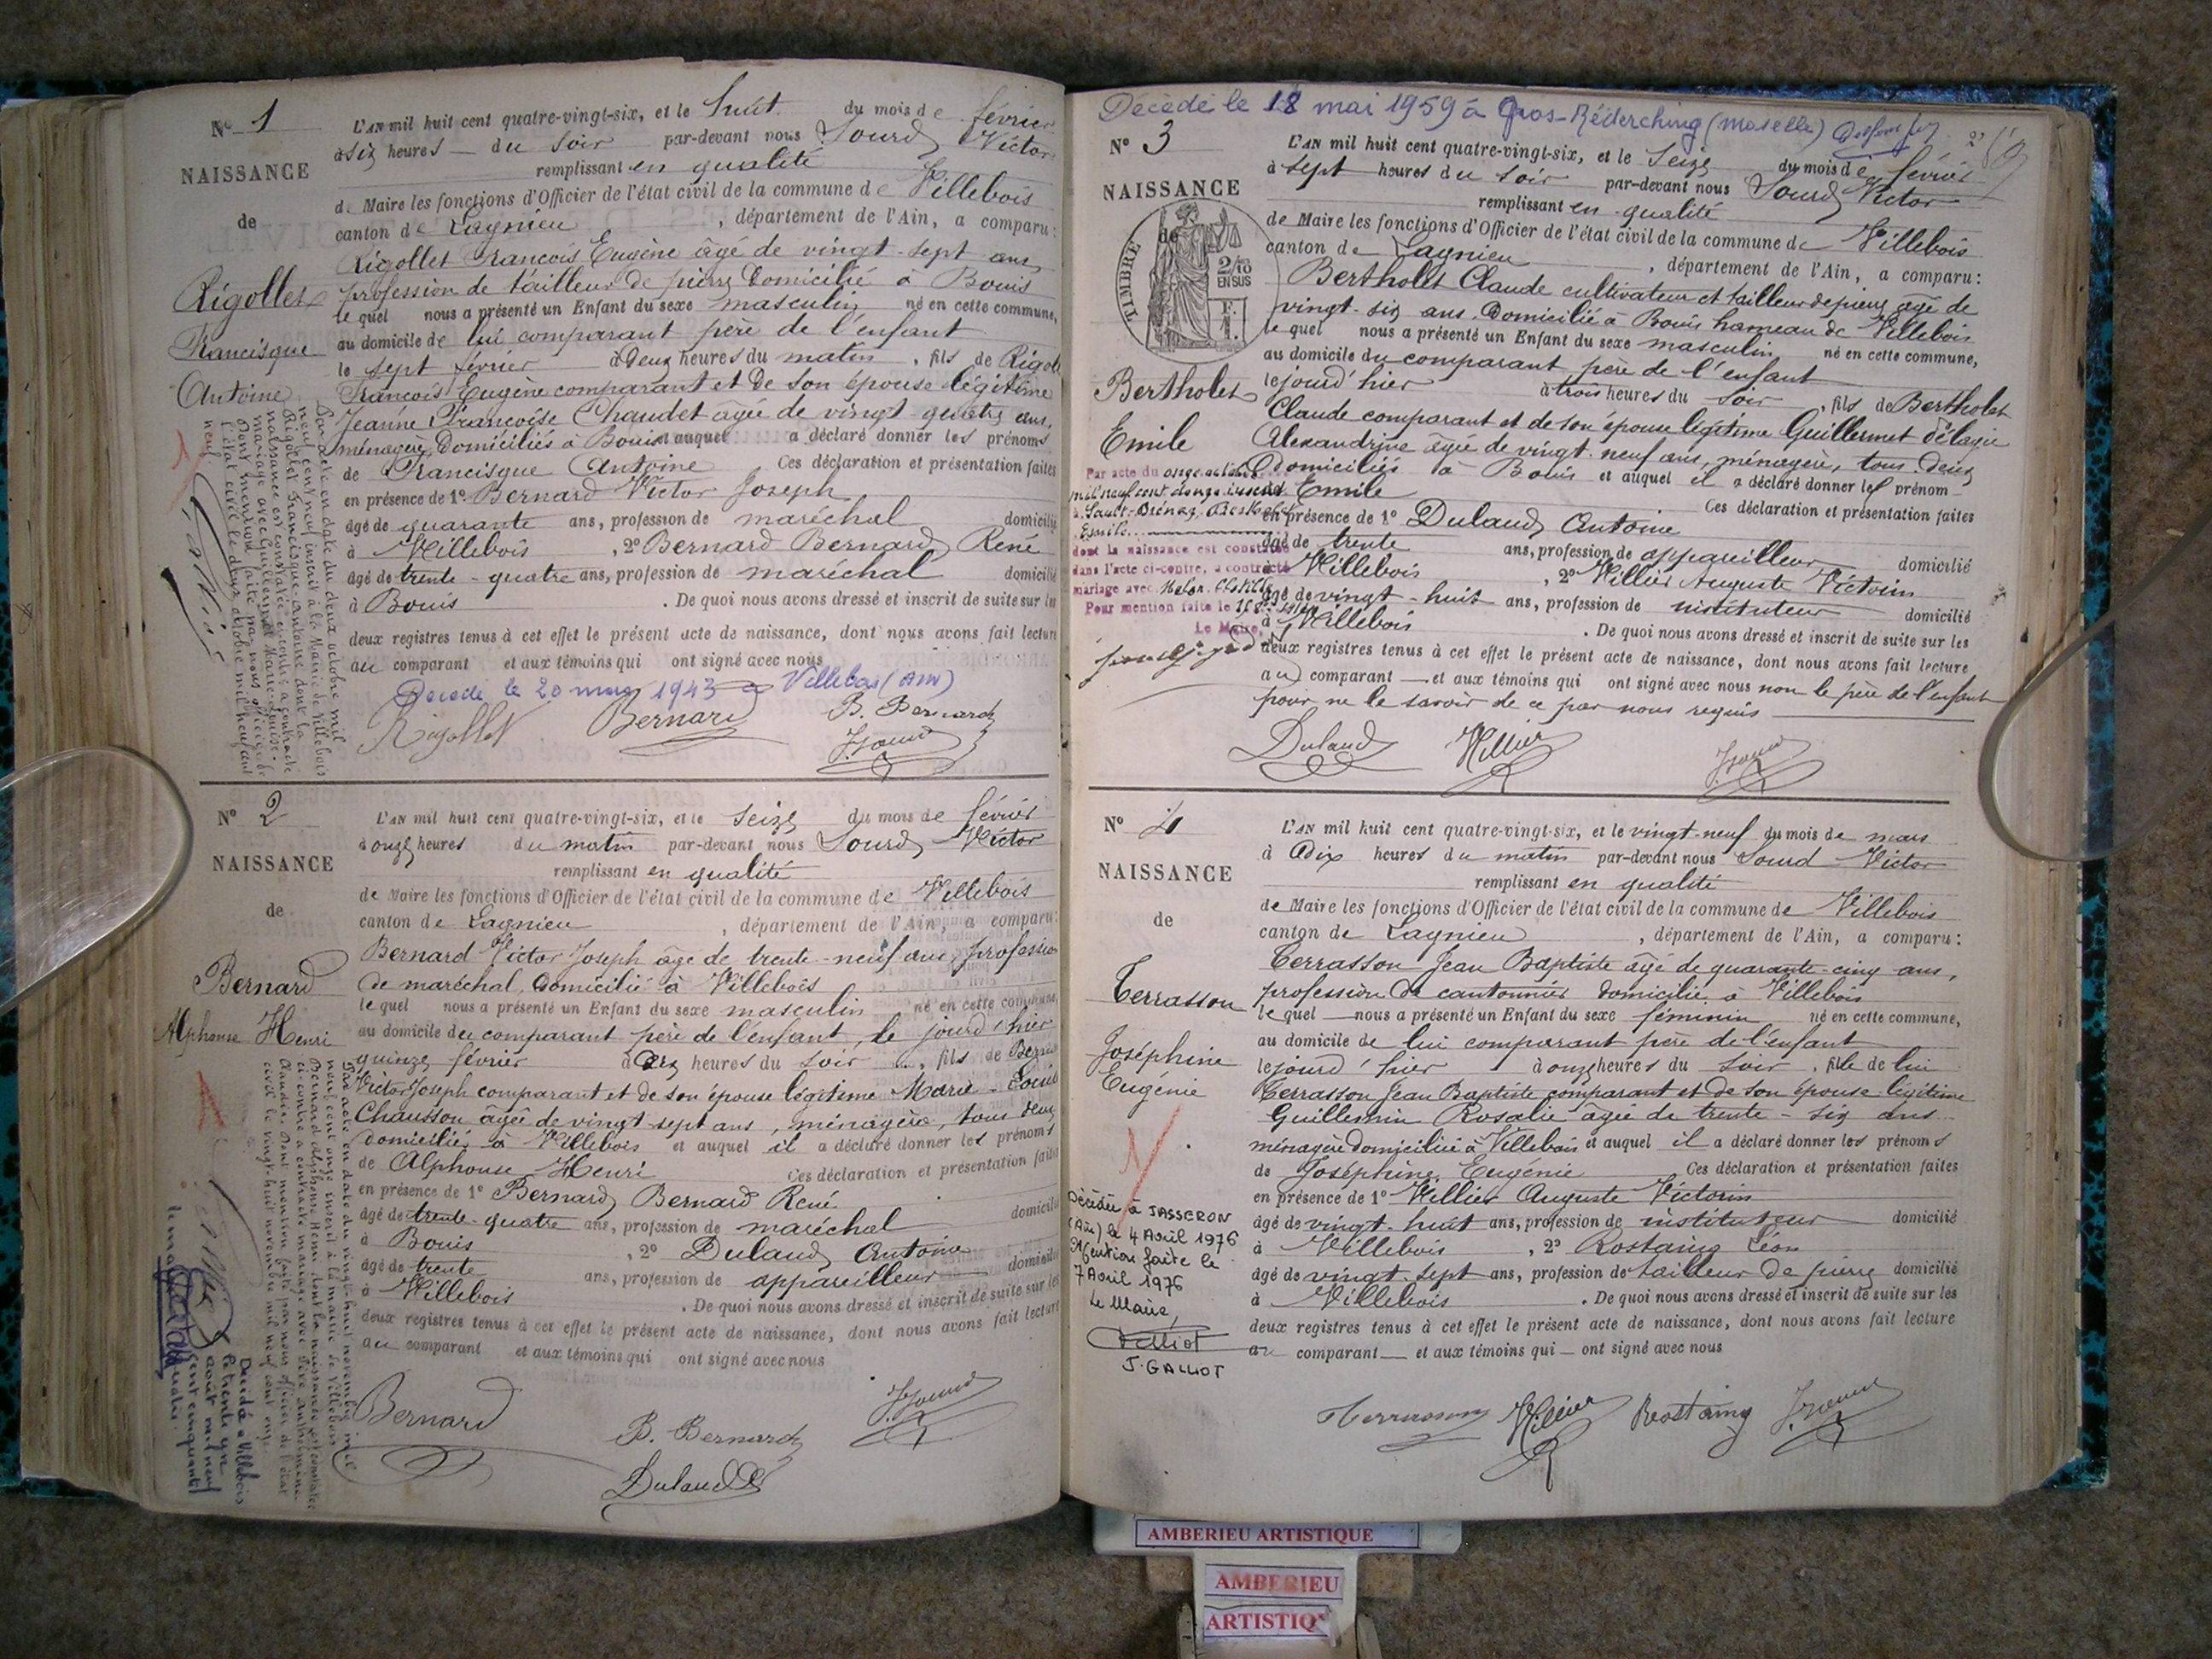 N° 1
NAISSANCE
de
Rigollet
Francisque
Antoine
L'AN mil huit cent quatre-vingt-six, et le huit du mois de février
à six heures du soir par-devant nous Sourd Victor
remplissant en qualité
de Maire les fonctions d'Officier de l'état civil de la commune de Villebois
canton de Lagnieu , département de l'Ain, a comparu:
Rigollet François Eugène âgé de vingt-sept ans
profession de tailleur de pierre domicilié à Bouis
le quel nous a présenté un Enfant du sexe masculin né en cette commune,
au domicile de lui comparant père de l'enfant
le sept février à deux heures du matin , fils de Rigollet
François Eugène comparant et de son épouse légitime
Jeanne Françoise Chaudet âgée de vingt-quatre ans,
ménagère, Domiciliés à Bouis et auquel a déclaré donner les prénoms
de Francisque Antoine Ces déclaration et présentation faites
en présence de 1° Bernard Victor Joseph
âgé de quarante ans, profession de maréchal domicilié
à Villebois , 2° Bernard Bernard René
âgé de trente-quatre ans, profession de maréchal domicilié
à Bouis . De quoi nous avons dressé et inscrit de suite sur les
deux registres tenus à cet effet le présent acte de naissance, dont nous avons fait lecture
au comparant et aux témoins qui ont signé avec nous
Décédé le 20 mars 1943 à Villebois (Ain)
Rigollet Bernard B. Bernard
V. Sourd
Par acte en date du deux octobre mil
neuf cent neuf inscrit à la Mairie de Villebois
Rigollet Francisque-Antoine dont la
naissance est constatée ci-contre a contracté
mariage avec Guillermet Marie-Louise.
Dont mention faite par nous officier de
l'état civil le deux octobre mil neuf cent
neuf.
N° 2
NAISSANCE
de
Bernard
Alphonse Henri
L'AN mil huit cent quatre-vingt-six, et le seize du mois de février
à onze heures du matin par-devant nous Sourd Victor
remplissant en qualité
de Maire les fonctions d'Officier de l'état civil de la commune de Villebois
canton de Lagnieu , département de l'Ain, a comparu:
Bernard Victor Joseph âgé de trente-neuf ans, profession
de maréchal, domicilié à Villebois
le quel nous a présenté un Enfant du sexe masculin né en cette commune,
au domicile du comparant père de l'enfant, le jourd'hier
quinze février à dix heures du soir , fils de Bernard
Victor Joseph comparant et de son épouse légitime Marie-Louise
Chausson âgée de vingt sept ans, ménagère, tous deux
domiciliés à Villebois et auquel il a déclaré donner les prénoms
de Alphonse Henri Ces déclaration et présentation faites
en présence de 1° Bernard Bernard René
âgé de trente-quatre ans, profession de maréchal domicilié
à Bouis , 2° Dulaud Antoine
âgé de trente ans, profession de appareilleur domicilié
à Villebois . De quoi nous avons dressé et inscrit de suite sur les
deux registres tenus à cet effet le présent acte de naissance, dont nous avons fait lecture
au comparant et aux témoins qui ont signé avec nous
Bernard B. Bernard V. Sourd
Dulaud
Par acte en date du vingt-huit novembre mil
neuf cent onze inscrit à la mairie de Villebois
Bernard Alphonse Henri dont la naissance est constatée
ci-contre a contracté mariage avec
Dont mention faite par nous officier de l'état
civil le vingt-huit novembre mil neuf cent onze.
Décédé à Villebois
le trente
août mil neuf
cent cinquante
Décédé le 18 mai 1959 à Gros-Réderching (Moselle)
N° 3
NAISSANCE
de
TIMBRE
2/10
EN SUS
F.
1.
Bertholet
Emile
L'AN mil huit cent quatre-vingt-six, et le seize du mois de février
à sept heures du soir par-devant nous Sourd Victor
remplissant en qualité
de Maire les fonctions d'Officier de l'état civil de la commune de Villebois
canton de Lagnieu , département de l'Ain, a comparu:
Bertholet Claude cultivateur et tailleur de pierre âgé de
vingt-six ans, domicilié à Bouis hameau de Villebois
le quel nous a présenté un Enfant du sexe masculin né en cette commune,
au domicile du comparant père de l'enfant
le jourd'hier à trois heures du soir , fils de Bertholet
Claude comparant et de son épouse légitime Guillermet Pélagie
Alexandrine âgée de vingt-neuf ans, ménagère, tous deux
domiciliés à Bouis et auquel il a déclaré donner les prénom
de Emile Ces déclaration et présentation faites
en présence de 1° Dulaud Antoine
âgé de trente ans, profession de appareilleur domicilié
à Villebois , 2° Villier Auguste Victorin
âgé de vingt-huit ans, profession de instituteur domicilié
à Villebois . De quoi nous avons dressé et inscrit de suite sur les
deux registres tenus à cet effet le présent acte de naissance, dont nous avons fait lecture
au comparant et aux témoins qui ont signé avec nous non le père de l'enfant
pour ne le savoir de ce par nous requis
Dulaud Villier V. Sourd
Par acte du onze octobre
mil neuf cent douze inscrit
à Sault-Brénaz, Bertholet
Emile
dont la naissance est constatée
dans l'acte ci-contre, a contracté
mariage avec
Pour mention faite le
Le Maire,
N° 4
NAISSANCE
de
Terrasson
Joséphine
Eugénie
L'AN mil huit cent quatre-vingt-six, et le vingt-neuf du mois de mars
à dix heures du matin par-devant nous Sourd Victor
remplissant en qualité
de Maire les fonctions d'Officier de l'état civil de la commune de Villebois
canton de Lagnieu , département de l'Ain, a comparu:
Terrasson Jean Baptiste âgé de quarante-cinq ans,
profession de cantonnier domicilié à Villebois
le quel nous a présenté un Enfant du sexe féminin né en cette commune,
au domicile de lui comparant père de l'enfant
le jourd'hier à onze heures du soir , fille de lui
Terrasson Jean Baptiste comparant et de son épouse légitime
Guillermin Rosalie âgée de trente-six ans
ménagère domiciliée à Villebois et auquel il a déclaré donner les prénoms
de Joséphine Eugénie Ces déclaration et présentation faites
en présence de 1° Villier Auguste Victorin
âgé de vingt-huit ans, profession de instituteur domicilié
à Villebois , 2° Rostaing Léon
âgé de vingt-sept ans, profession de tailleur de pierre domicilié
à Villebois . De quoi nous avons dressé et inscrit de suite sur les
deux registres tenus à cet effet le présent acte de naissance, dont nous avons fait lecture
au comparant et aux témoins qui ont signé avec nous
Terrasson Villier Rostaing V. Sourd
Décédée à JASSERON
(Ain) le 4 Avril 1976
Mention faite le
7 Avril 1976
Le Maire,
J. GALLIOT
AMBERIEU ARTISTIQUE
AMBERIEU
ARTISTIQ